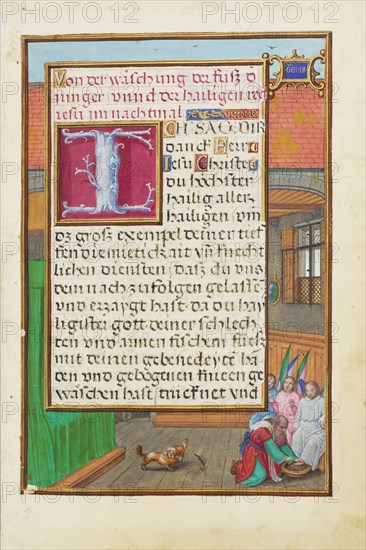 Von der wäschung der füsz d
iunger vnnd der hailigen
iesu im nachtmal
ICH SAG DIR
danck Herr
Jesu Christe
du höchster
hailig aller
hailigen vm
dz grosz exempel deiner tief
fen diemietickait vn̄ knecht
lichen diensten, dasz du vns
dem nach zu folgen gelassē
vnd erzaygt hast, da du hay
ligister gott deiner schlech
ten vnd armen fischern fiesz
mit deinen gebenedeytē hä
den vnd gebogenen knieen ge
waschen hast, trücknet vnd